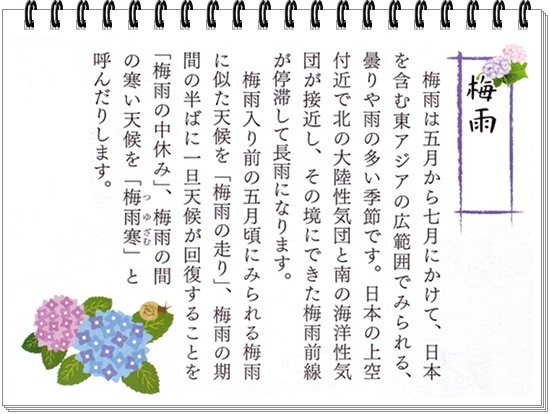 梅雨
梅雨は五月から七月にかけて、日本
を含む東アジアの広範囲でみられる、
曇りや雨の多い季節です。日本の上空
付近で北の大陸性気団と南の海洋性気
団が接近し、その境にできた梅雨前線
が停滞して長雨になります。
梅雨入り前の五月頃にみられる梅雨
に似た天候を「梅雨の走り」、梅雨の期
間の半ばに一旦天候が回復することを
「梅雨の中休み」、梅雨の間
の寒い天候を「梅雨寒」と
つゆざむ
呼んだりします。